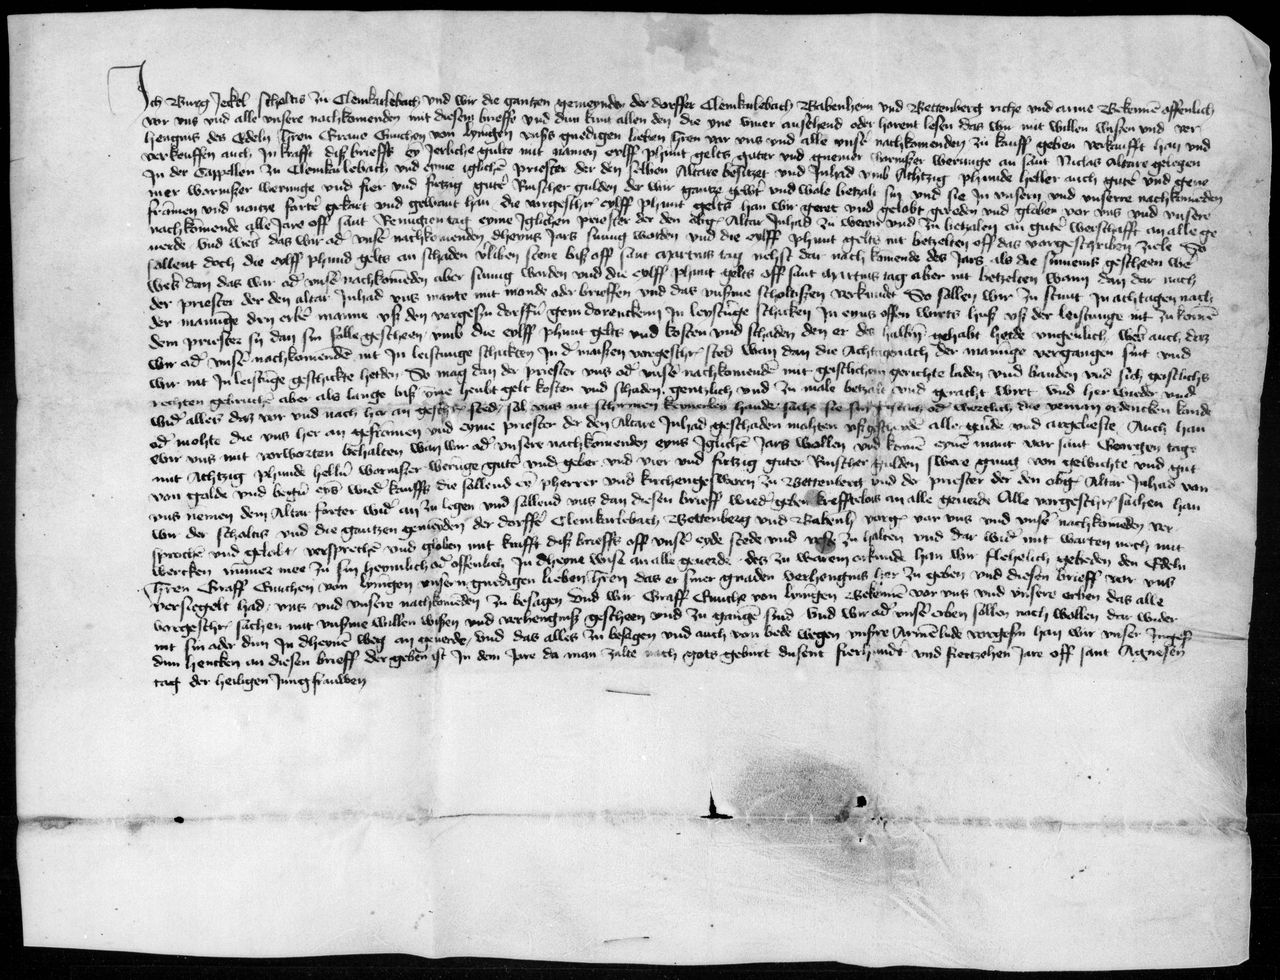 Ich Burg Jeckel scholtis zu Clemkarlebach und wir die gantzen gemeynden der dorffer Clemkarlebach Babenheim und Bettenberg riche und arme Bekennē offenlich
vor uns und alle unsere nachkomenden mit diesem brieffe und dun kunt allen den die yne ymer ansehend oder horent lesen das wir mit willen wissen und ver
hengnis des Edeln hern Grave Emichen von Lynigen unsß gnedigen lieben hern vor uns und alle unsˀ nachkomenden zu kauff geben verkaufft han und
verkeuffen auch in krafft diß brieffs jerliche gulte mit namen eylff phunt gelts guter und gnemer wormßer werunge an sant Niclas Altare gelegen
In der Cappellen zu Clemkarlebach und eyme iglichē priester der den selben Altare besitzet und Inhad umb Achtzig phunde heller auch gutˀ und gene
mer wormßer werunge und fier und firtzig gutˀ Rinscher gulden der wir gantze gewˀt und wole betzalt sin und sie in unsern und unserre nachkomēden
fromen und nottze fortˀ gekart und gewant han die vorgeschrˀ eylff phunt gelts han wir geret und gelobt gereden und globen vor uns und unsere
nachkomende alle Jare off sant Remigien tag eyme Iglichen priester der den obgˀ Altar Inhad zu weren und zu betzalen an gutˀ werschafft an alle ge
verde und weˀs das wir adˀ unsˀ nachkomenden dheyns Jars sumig worden und die eylff phunt gelts nit betzelten off das vorgeschriben ziele So
sollent doch die eylff phund gelts an schaden ūliben steen biß off sant martins tag nehst dar nach komende des Jars als die sumenis gescheen weˀ
weˀs dan das wir adˀ unsˀ nachkomēden aber sumig worden und die eylff phunt gelts off sant martins tag aber nit betzelten wann dan dar nach
der priester der den altar Inhad uns mante mit monde oder brieffen und das unsˀme scholtißen verkundet So sollen wir zu stunt In achtagen nach
der manunge drey erbˀ manne uß den vorgesˀn dorffˀn In leystūge schicken In eyns offen wirts huß uß der leistunge nit zu komē
dem priester sy dan sin folle gescheen umb die eylff phunt gelts und kosten und schaden den er des halbˀn gehabt hette ungeūlich weˀs auch daz
wir adˀ unsˀ nachkomendē nit In leistunge schickten In dˀ maißen vorgeschrˀ sted wan dan die Achtage nach der manunge vergangen sint und
wir nit In leistūge geschickte hetden So mag dan der priester uns adˀ unsˀ nachkomendē mit geistlichem gerichte laden und bannen und sich geistlichs
rechten gebruchē aber als lange biß yme heubt gelt kosten und schaden gentzlich und zu male betzalt und gericht wirt und her wieder und
widˀ alles das vor und nach her an geschrˀ sted sol uns nit schirmen keynerley hande sache sie sin geistlich adˀ werntlich die yeman erdencken kunde
adˀ mohte die uns her an gefromen und eyme priester der den Altare Inhad geschaden mohten ußgescheidē alle gūde und argeliste Auch han
wir uns mit vorworten behalten wan wir adˀ unsere nachkomenden eyns Iglichē Jars wollen und komē eynē maint vor sant Georgen tage
mit Achtzig phunde hellˀn wormßer werunge gutˀ und geber und vier und firtzig guter Rinscher gulden swere gnug von gewichte und gut
von golde und begˀn eyns wider kauffs die sollend eyˀ pherrer und kirchengesworn zu Bettenberg und der priester der den obgˀ Altar Inhad von
uns nemen dem Altar forter widˀ an zu legen und sollend uns dan diesen brieff wiedˀ geben krefftelois an alle geverde Alle vorgeschrˀ sachen han
wir der scholtis und die gantzen gemeynden der dorffˀ Clemkarlebach Bettenberg und Babenhˀ vorgˀ vor uns und unsˀ nachkomēden ver
sprochē und gelobt versprechē und globen mit krafft diß brieffs off unsˀ eyde stede und veste zu halten und dar widˀ mit warten noch mit
wercken nūmer mee zu sin heymlich adˀ offenlich In dheyne wise an alle geverde des zu warem orkunde han wir flehelich gebeden den Edeln
hern Graff Emichen von Lynigen unsern gnedigen lieben hern das er siner gnaden verhengniß her zu geben und diesen brieff vor uns
versiegelt had uns und unsere nachkomēden zu besagen Und wir Graff Emiche von Lynīgen Bekennē vor uns und unsere erben das alle
vorgeschrˀ sachen mit unsˀme willen wißen und verhengniß gescheen und zu gangē sind und wir adˀ unsˀ erben sollen noch wollen dar wider
nit sin ader dun In dheynē weg an geverde und das alles zu besagen und auch von bede wegen unsˀre Armēlude vorgesˀn han wir unser Ingesˀ
dun hencken an diesen brieff der geben ist In dem Jare da man zalte nach gots geburt dusent fierhundˀt und fiertzehen Jare off sant Agnesen
tag der heiligen Jungfrauwen